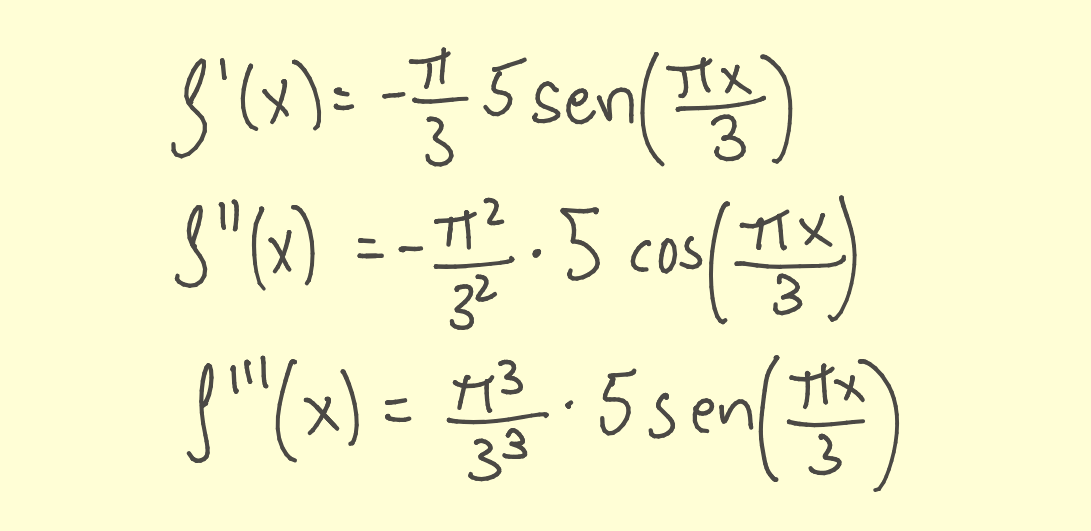 f'(x) = -π/3 5 sen(πx/3)
f''(x) = -π²/3² · 5 cos(πx/3)
f'''(x) = π³/3³ · 5 sen(πx/3)